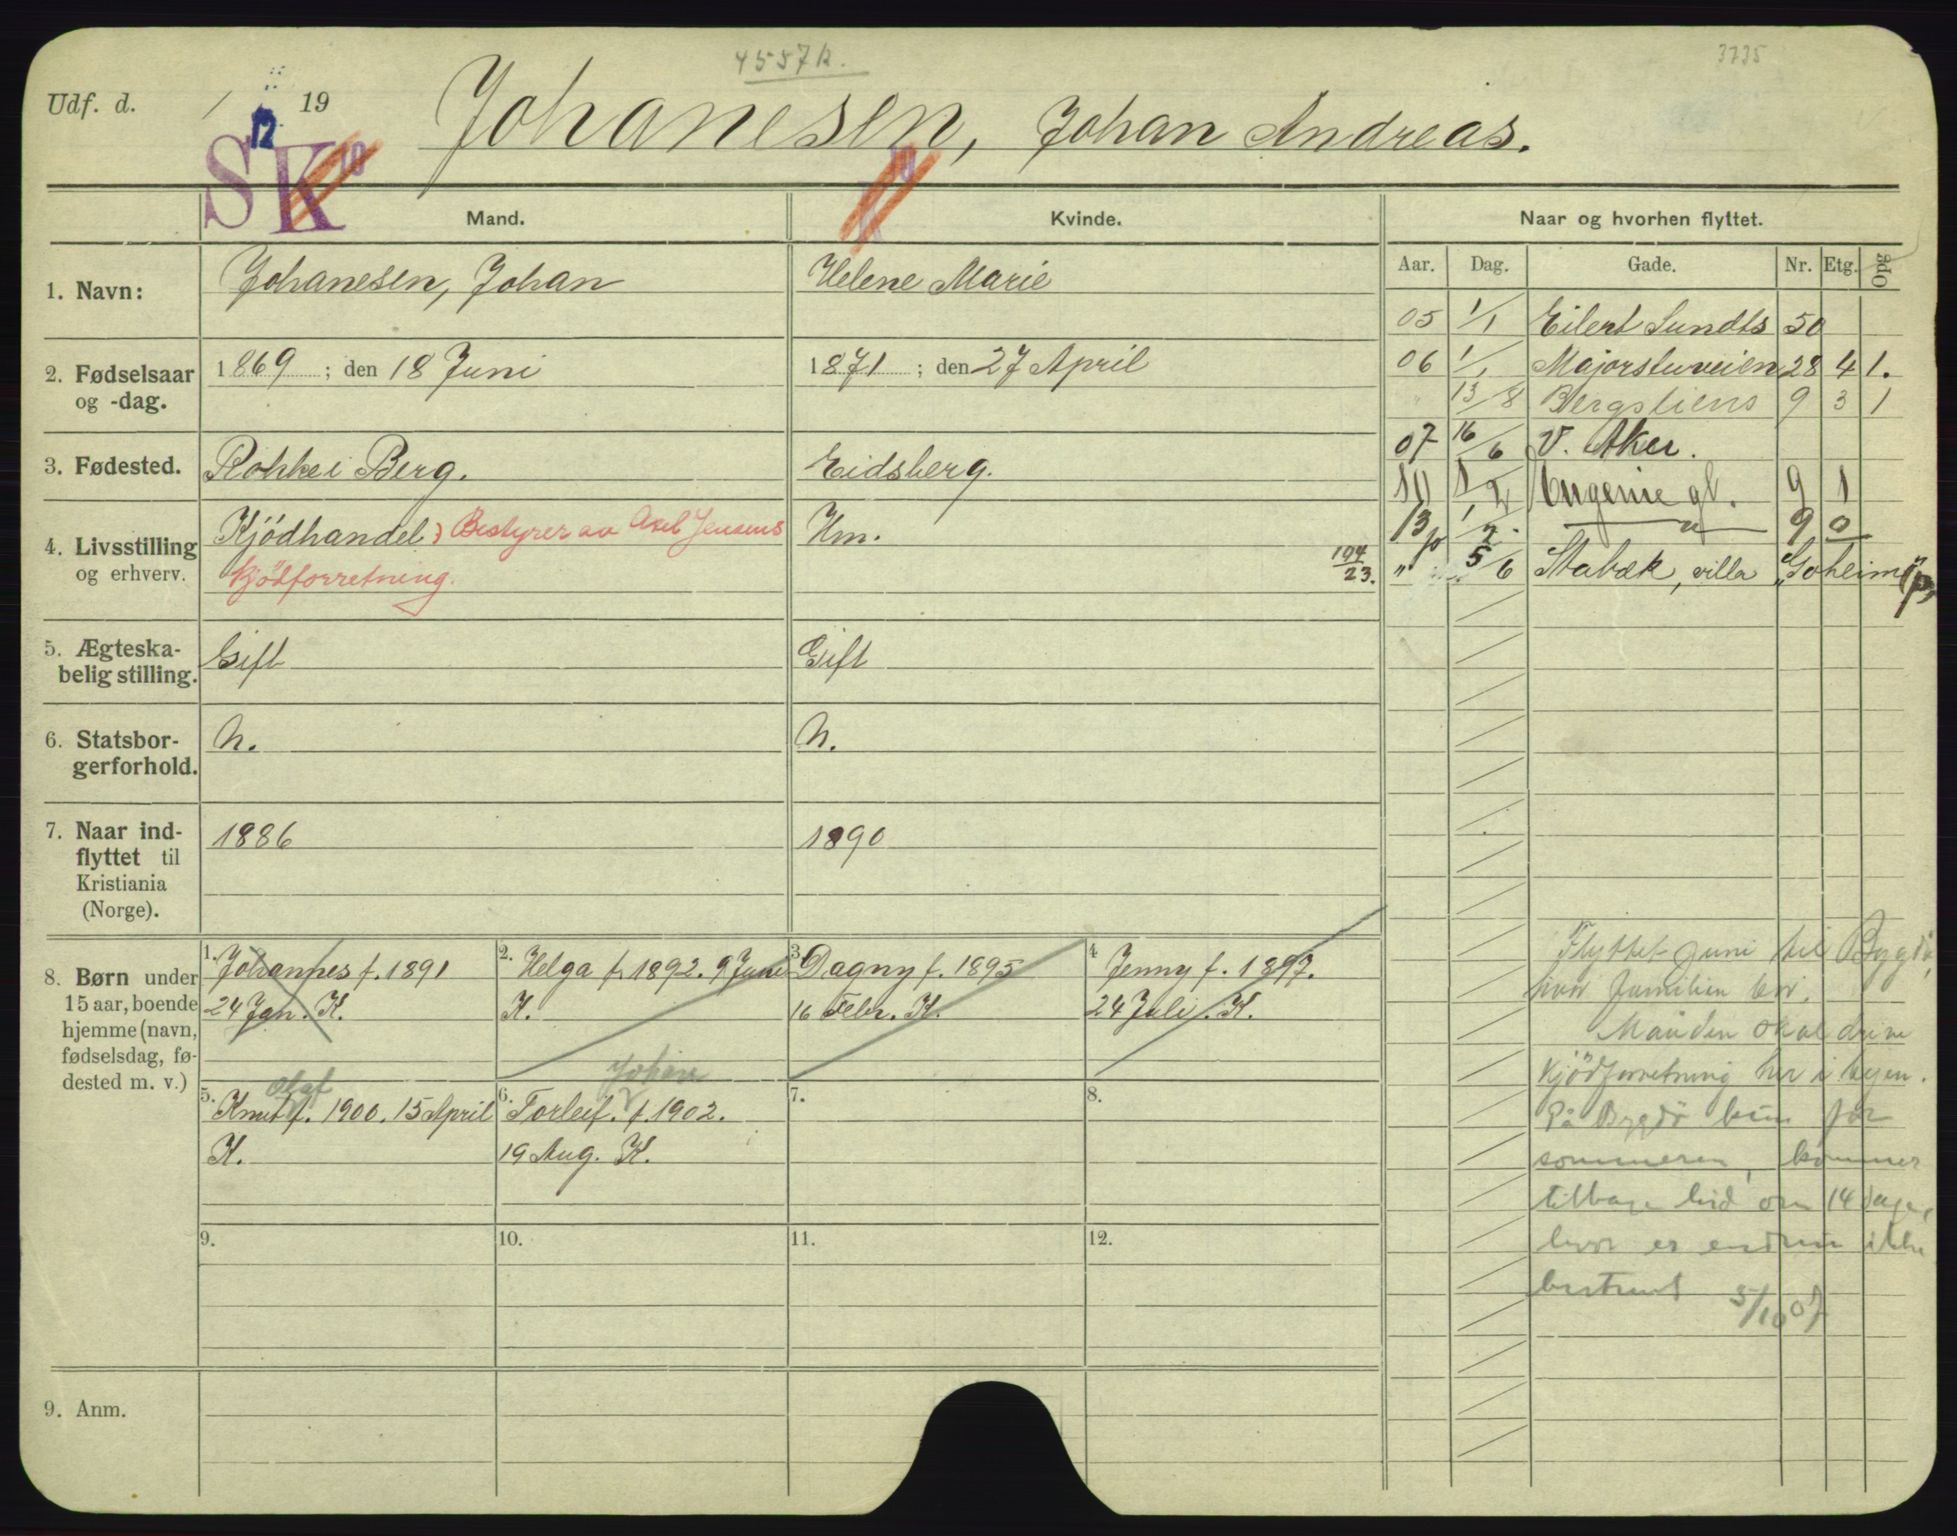 4557k.
3735
Udf. d. / 19
Johanesen, Johan Andreas.
12
SK 10
K 10
Mand.
Kvinde.
Naar og hvorhen flyttet.
Aar. Dag. Gade. Nr. Etg. Opg
1. Navn:
Johanesen, Johan
Helene Marie
05 1/1 Eilert Sundts 50
2. Fødselsaar
og -dag.
1869 ; den 18 Juni
1871 ; den 27 April
06 1/1 Majorstuveien 28 4 1.
" 13/8 Bergsliens 9 3 1
07 16/6 V. Aker.
3. Fødested.
Rokke i Berg.
Eidsberg.
10 1/2 Eugenie gt. 9 1
4. Livsstilling
og erhverv.
Kjödhandel) Bestyrer av Axel Jensens
Kjötforretning.
Hm.
13 1/2 " 9 0
194/23.
" 5/6 Stabæk, villa "Soheim" (p)
5. Ægteska-
belig stilling.
Gift
Gift
6. Statsbor-
gerforhold.
N.
N.
7. Naar ind-
flyttet til
Kristiania
(Norge).
1886
1890
8. Børn under
15 aar, boende
hjemme (navn,
fødselsdag, fø-
dested m. v.)
1. Johannes f. 1891
24 Jan. K.
2. Helga f. 1892. 9 Juni
K.
3. Dagny f. 1895
16 Febr. K.
4 Jenny f. 1897.
24 Juli. K.
Olaf
5. Knut f. 1900. 15 April
K.
Johan
6. Torleif. f. 1902.
19 Aug. K.
7.
8.
9.
10.
11.
12.
Flyttet juni til Bygdö,
hvor familien bor.
Manden skal drive
kjödforretning her i byen.
På Bygdö kun for
sommeren, kommer
tilbage hid om 14 dage,
hvor er endnu ikke
bestemt 5/10 07
9. Anm.